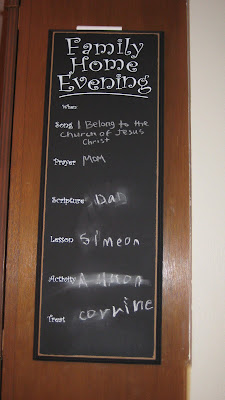 Family
Home
Evening
When
Song I Belong to the
Church of Jesus
Christ
Prayer Mom
Scripture Dad
Lesson Simeon
Activity
Treat corrine